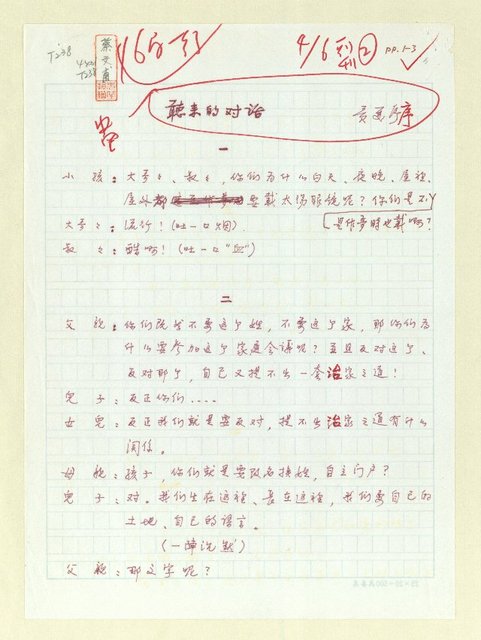 T238
4/6刊②
pp.1-3
蔡文甫
聽来的对话
一
小孩：大哥々、叔々，你们为什么白天、夜晚、屋裡、
屋外都要戴太阳眼镜呢？你们是不
是作夢時也戴啊？
大哥々：流行！(吐一口烟)
叔々：酷啊！(吐一口"血")
二
父親：你们既然不要这个姓，不要这个家，那你们为
什么要参加这个家庭会议呢？並且反对这个、
反对那个，自己又提不出一套治家之道！
兒子：反正你们....
女兒：反正我们就是要反对，提不出治家之道有什么
関係。
母親：孩子，你们就是要改名換姓，自立门户？
兒子：对。我们生在这裡、長在这裡，我们要自己的
土地、自己的语言。
(一陣沉默)
父親：那文字呢？